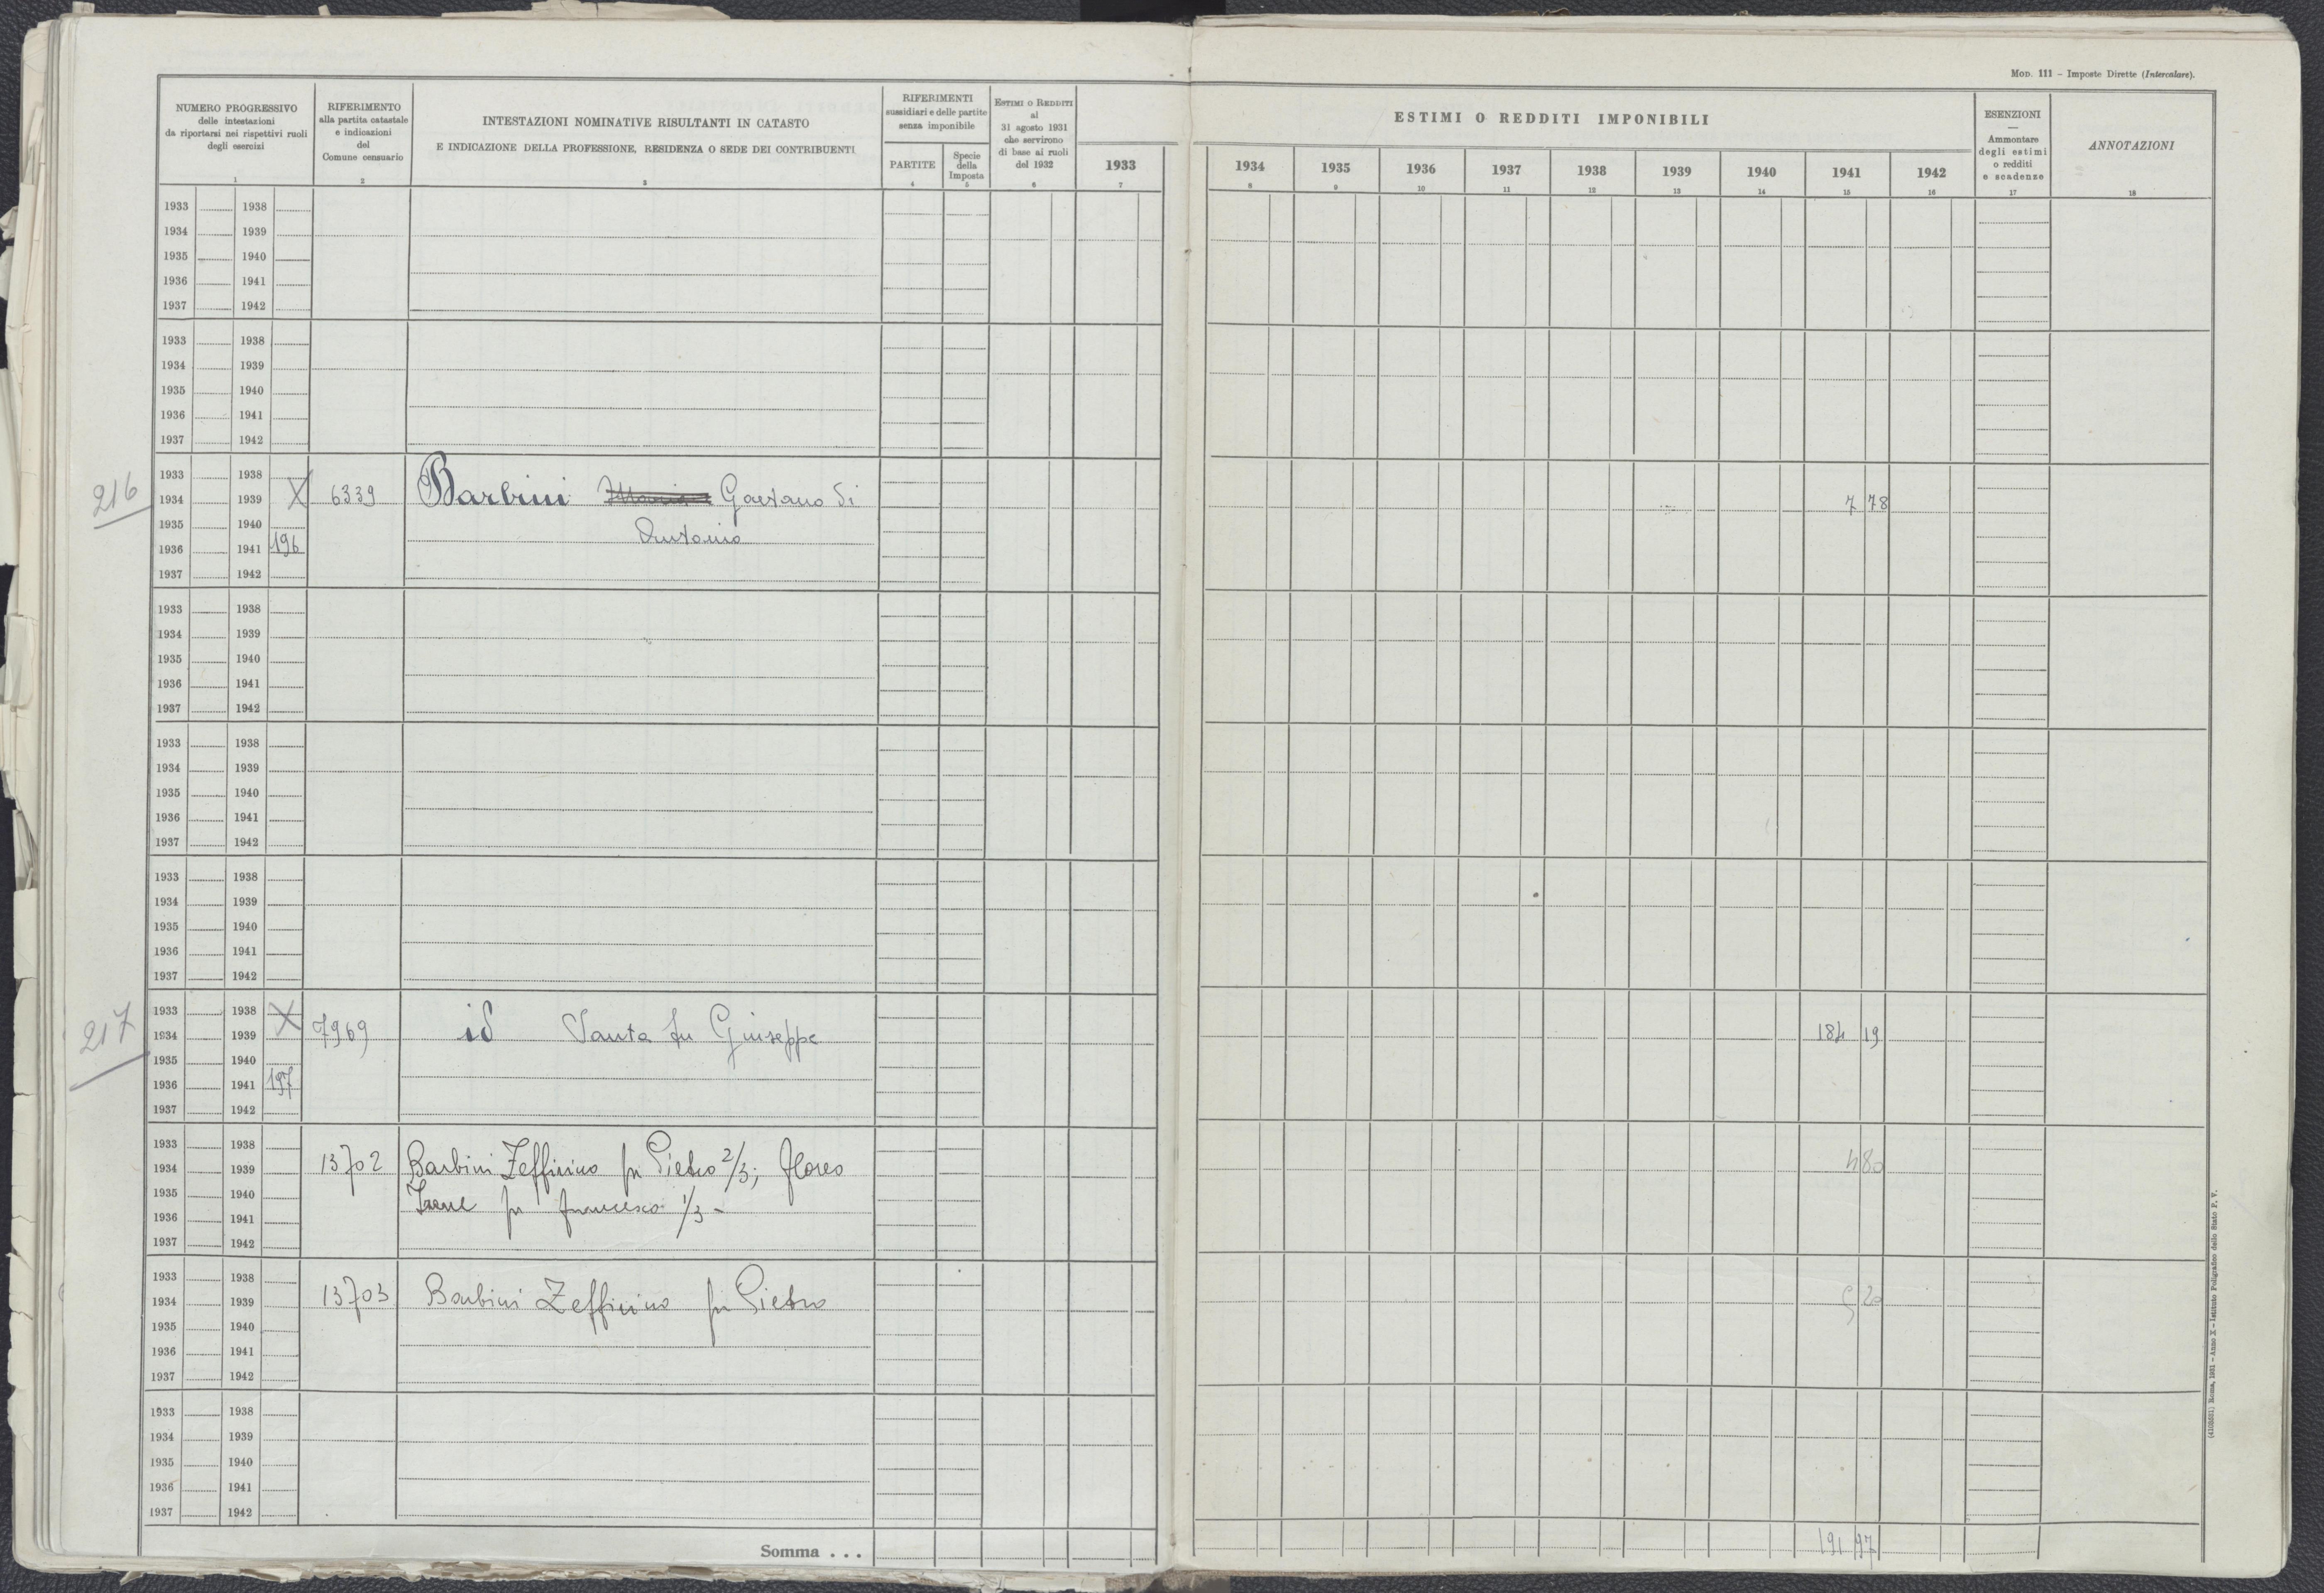 MOD. 111 - Imposte Dirette (Intercalare).
NUMERO PROGRESSIVO
delle intestazioni
da riportarsi nei rispettivi ruoli
degli esercizi
1
RIFERIMENTO
alla partita catastale
e indicazioni
del
Comune censuario
2
INTESTAZIONI NOMINATIVE RISULTANTI IN CATASTO
E INDICAZIONE DELLA PROFESSIONE, RESIDENZA O SEDE DEI CONTRIBUENTI
3
RIFERIMENTI
sussidiari e delle partite
senza imponibile
PARTITE
4
Specie
della
Imposta
5
ESTIMI O REDDITI
al
31 agosto 1931
che servirono
di base ai ruoli
del 1932
6
1933
7
ESTIMI O REDDITI IMPONIBILI
1934 1935 1936 1937 1938 1939 1940 1941 1942
8 9 10 11 12 13 14 15 16
ESENZIONI
—
Ammontare
degli estimi
o redditi
e scadenze
17
ANNOTAZIONI
18
1933 1938
1934 1939
1935 1940
1936 1941
1937 1942
1933 1938
1934 1939
1935 1940
1936 1941
1937 1942
1933 1938
216 1934 1939 X 6339 Barbini Gaetano di 7 78
1935 1940 Antonio
1936 1941 196
1937 1942
1933 1938
1934 1939
1935 1940
1936 1941
1937 1942
1933 1938
1934 1939
1935 1940
1936 1941
1937 1942
1933 1938
1934 1939
1935 1940
1936 1941
1937 1942
1933 1938 X
217 1934 1939 7969 id Santa fu Giuseppe 184 19
1935 1940
1936 1941 197
1937 1942
1933 1938
1934 1939 13702 Barbini Zeffirino fu Pietro 2/3; 4 80
1935 1940 Irene fu Francesco 1/3 -
1936 1941
1937 1942
1933 1938
1934 1939 13703 Barbini Zeffirino fu Pietro 20
1935 1940
1936 1941
1937 1942
1933 1938
1934 1939
1935 1940
1936 1941
1937 1942
Somma . . . 191 97
(4103531) Roma, 1931 - Anno X - Istituto Poligrafico dello Stato P. V.